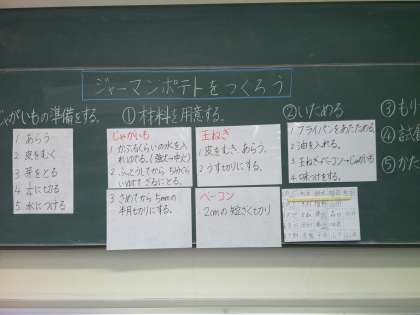 ジャーマンポテトをつくろう
じゃがいもの準備をする。
1 あらう
2 皮をむく
3 芽をとる
4 1/4に切る
5 水につける
①材料を用意する。
じゃがいも
1 かぶるくらいの水を入
れゆでる。(強火→中火)
2 ふっとうしてから
3 さめてから5mmの
半月切りにする。
玉ねぎ
1 皮をむき、あらう。
2 うす切りにする。
ベーコン
・2cmの短ざく切り
②いためる
1 フライパンをあたためる。
2 油を入れる。
3 玉ねぎ→ベーコン→じゃがいも
4 味つけをする。
③もり
④試食
⑤かた